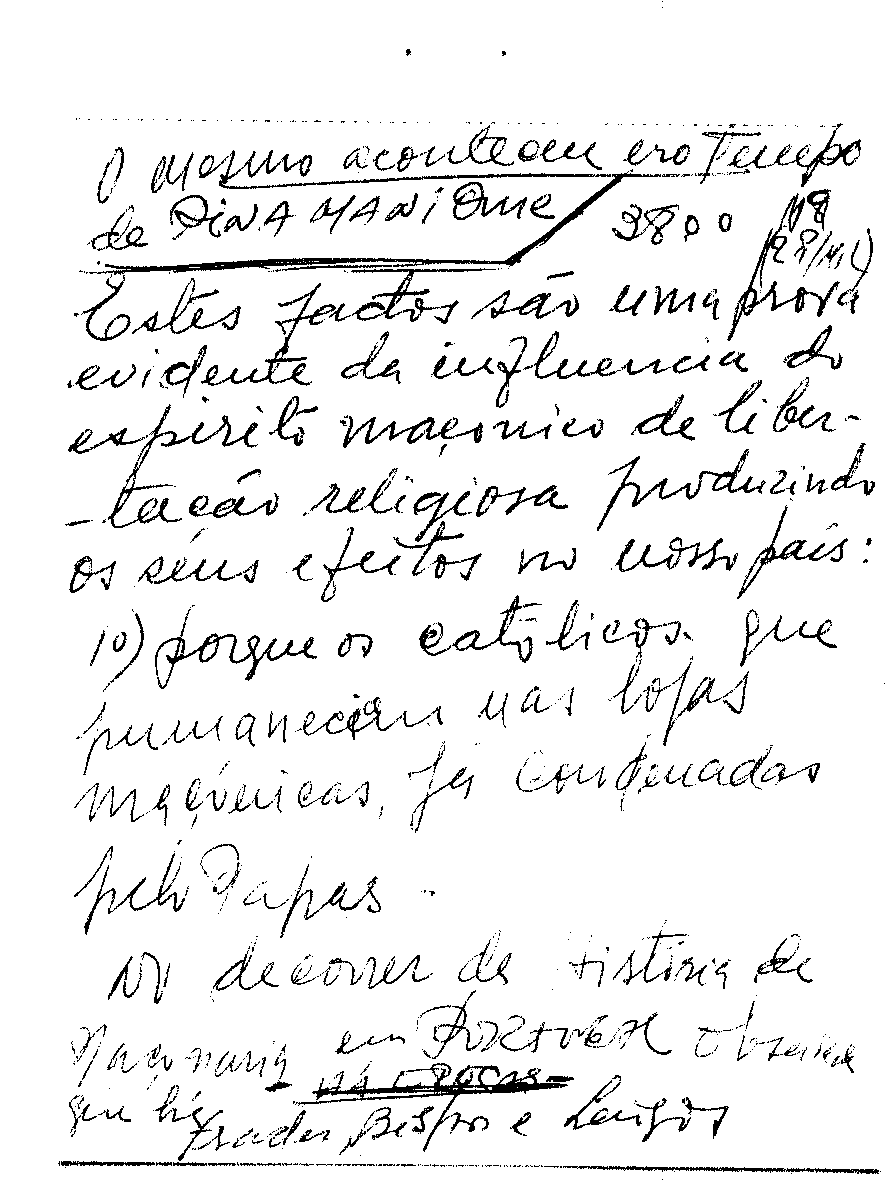 O mesmo aconteceu no Tempo
de PINA MANIQUE 3800
Estes factos são uma prova
evidente da influencia do
espirito maçonico de liber-
-tação religiosa produzindo
os séus efeitos no nosso país:
1º) porque os católicos que
permaneciam nas lojas
maçónicas, já condenadas
pelo Papas.
No decorrer da História de
Maçonaria em PORTUGAL observa
que há
Frades, Bispos e Leigos